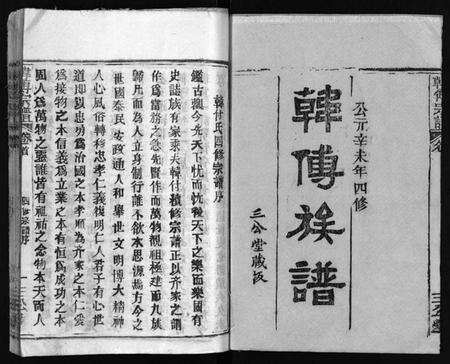 公元辛未年四修
韓傅族譜
三公堂藏板
韓付氏四修宗譜序
鑑古觀今先天下之憂而憂後天下之樂而樂國有
史誌族有家乘夫韓付積修宗譜正以齊家之謂
作為當務之急先賢作而萬物覩祖極建而九族
歸凡而為人立身制行誰不飲水思源為方今之
世國泰民安政通人和舉世文明博大精神
人心風俗轉移忠孝仁義復明仁人君子有心世
道即以忠勇為治國之本孝順為齊家之本仁愛
為接物之本信義為立業之本有恆為成功之本
圖人為萬物之靈誰昔有祖祠之念物本天而人